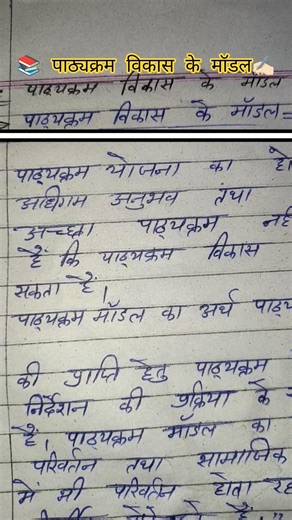 📚 पाठ्यक्रम विकास के मॉडल ✍🏻
पाठ्यक्रम विकास के मॉडल
पाठ्यक्रम विकास के मॉडल=
पाठ्यक्रम योजना का हो
अधिगम अनुभव तथा
अच्छा पाठ्यक्रम नह
हैं कि पाठ्यक्रम विकास
सकता हैं।
पाठ्यक्रम मॉडल का अर्थ पाठ्य
की प्राप्ति हेतु पाठ्यक्रम
निर्देशन की प्रक्रिया के
हैं। पाठ्यक्रम मॉडल का
परिवर्तन तथा सामाजिक
में भी परिवर्तन होता रह